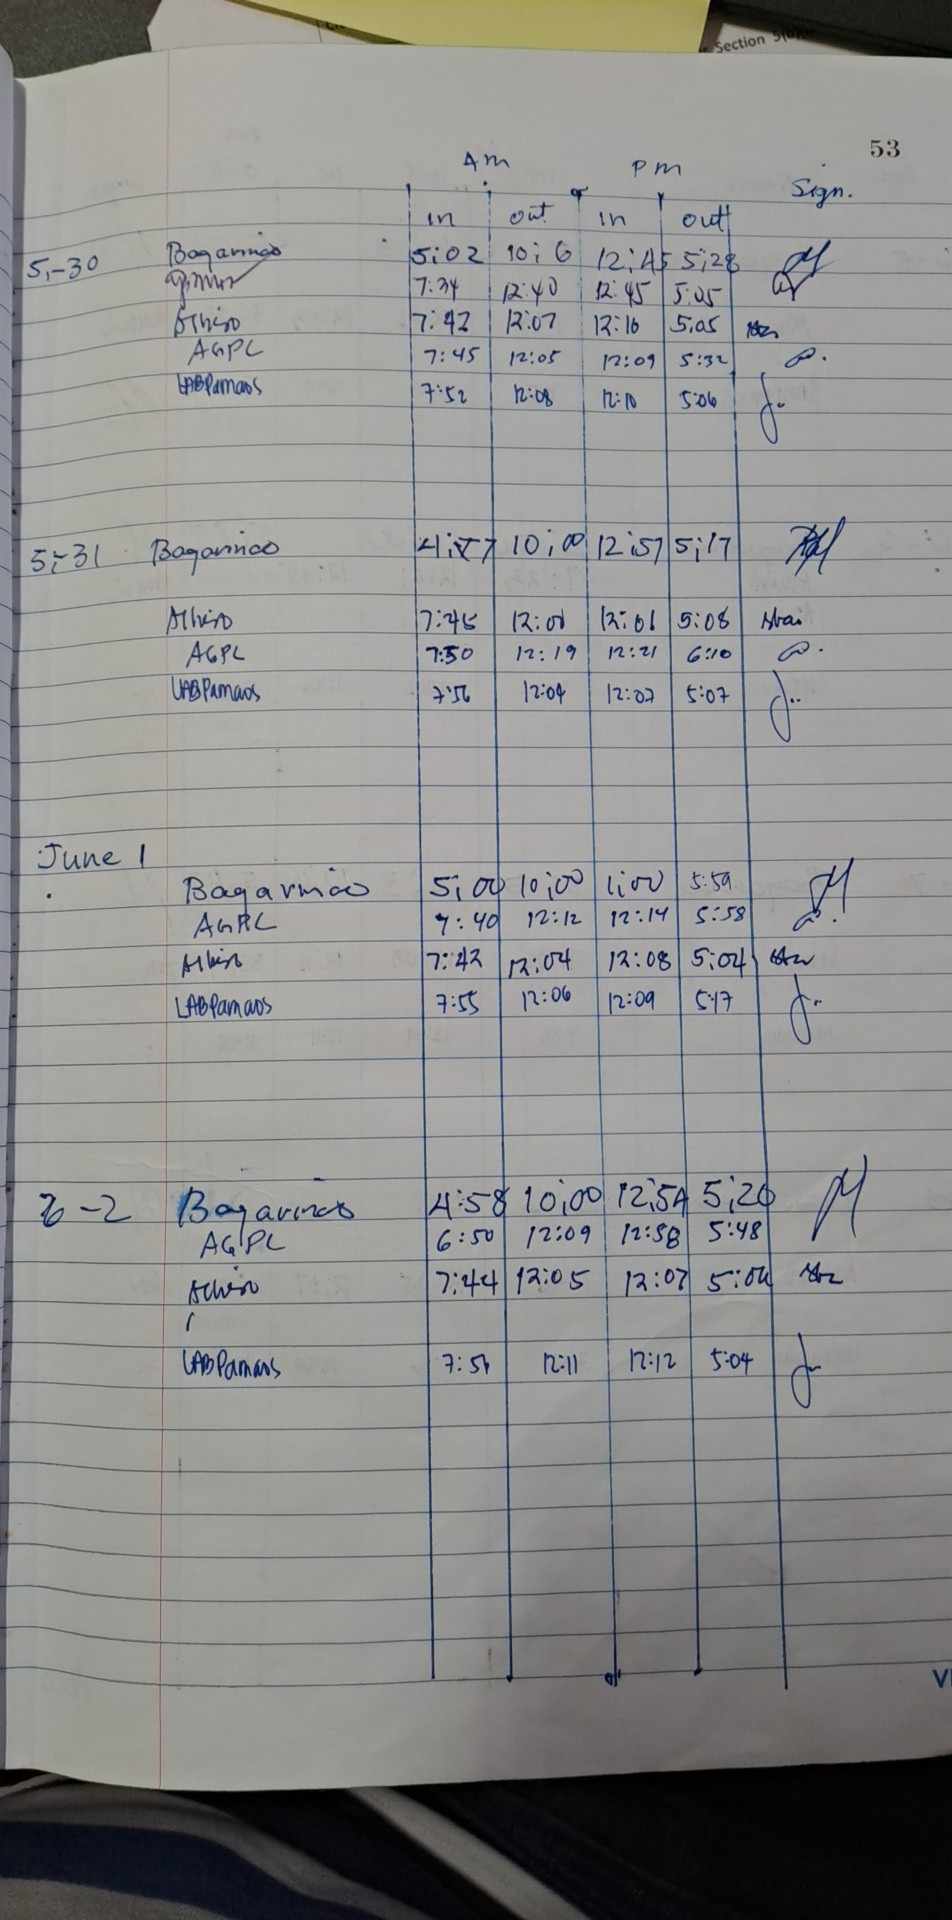 Section 5(
53
Am Pm
Sign.
in out in out
5-30 Bagarinao 5:02 10:6 12:45 5:28
7:34 12:40 12:45 5:05
7:42 12:07 12:10 5:05
AGPL 7:45 12:05 12:09 5:32
LABPamaos 7:52 12:08 12:10 5:06
5-31 Bagarinao 4:57 10:00 12:57 5:17
7:45 5:08
AGPL 7:50 12:19 12:21 6:10
LABPamaos 7:56 12:04 12:07 5:07
June 1
Bagarinao 5:00 10:00 1:00 5:59
AGPL 7:40 12:12 12:14 5:58
7:42 12:04 12:08 5:04
LABPamaos 7:55 12:06 12:09 5:17
6-2 Bagarinao 4:58 10:00 12:54 5:20
AGPL 6:50 12:09 12:58 5:48
7:44 12:05 12:07
LABPamaos 12:11 12:12 5:04
VI